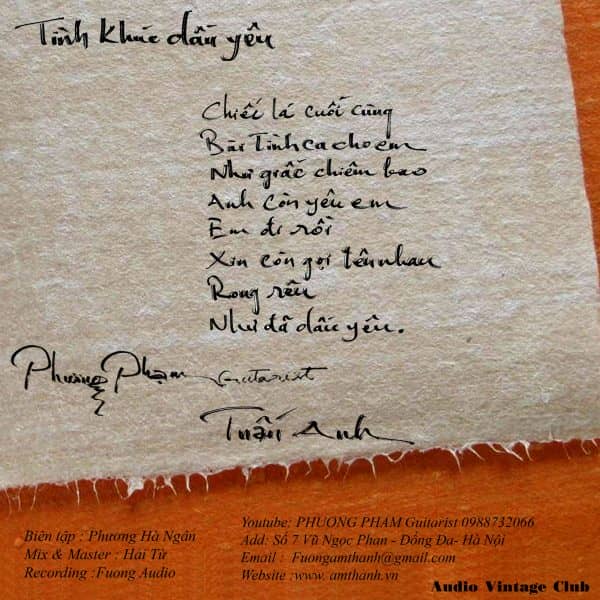 Tình khúc dấu yêu
Chiếc lá cuối cùng
Bài Tình ca cho em
Như giấc chiêm bao
Anh còn yêu em
Em đi rồi
Xin còn gọi tên nhau
Rong rêu
Như đã dấu yêu.
Phương Phạm Guitarist
Tuấn Anh
Biên tập : Phương Hà Ngân
Mix & Master : Hải Từ
Recording :Fuong Audio
Youtube: PHUONG PHAM Guitarist 0988732066
Add: Số 7 Vũ Ngọc Phan - Đống Đa- Hà Nội
Email : Fuongamthanh@gmail.com
Website :www. amthanh.vn
Audio Vintage Club